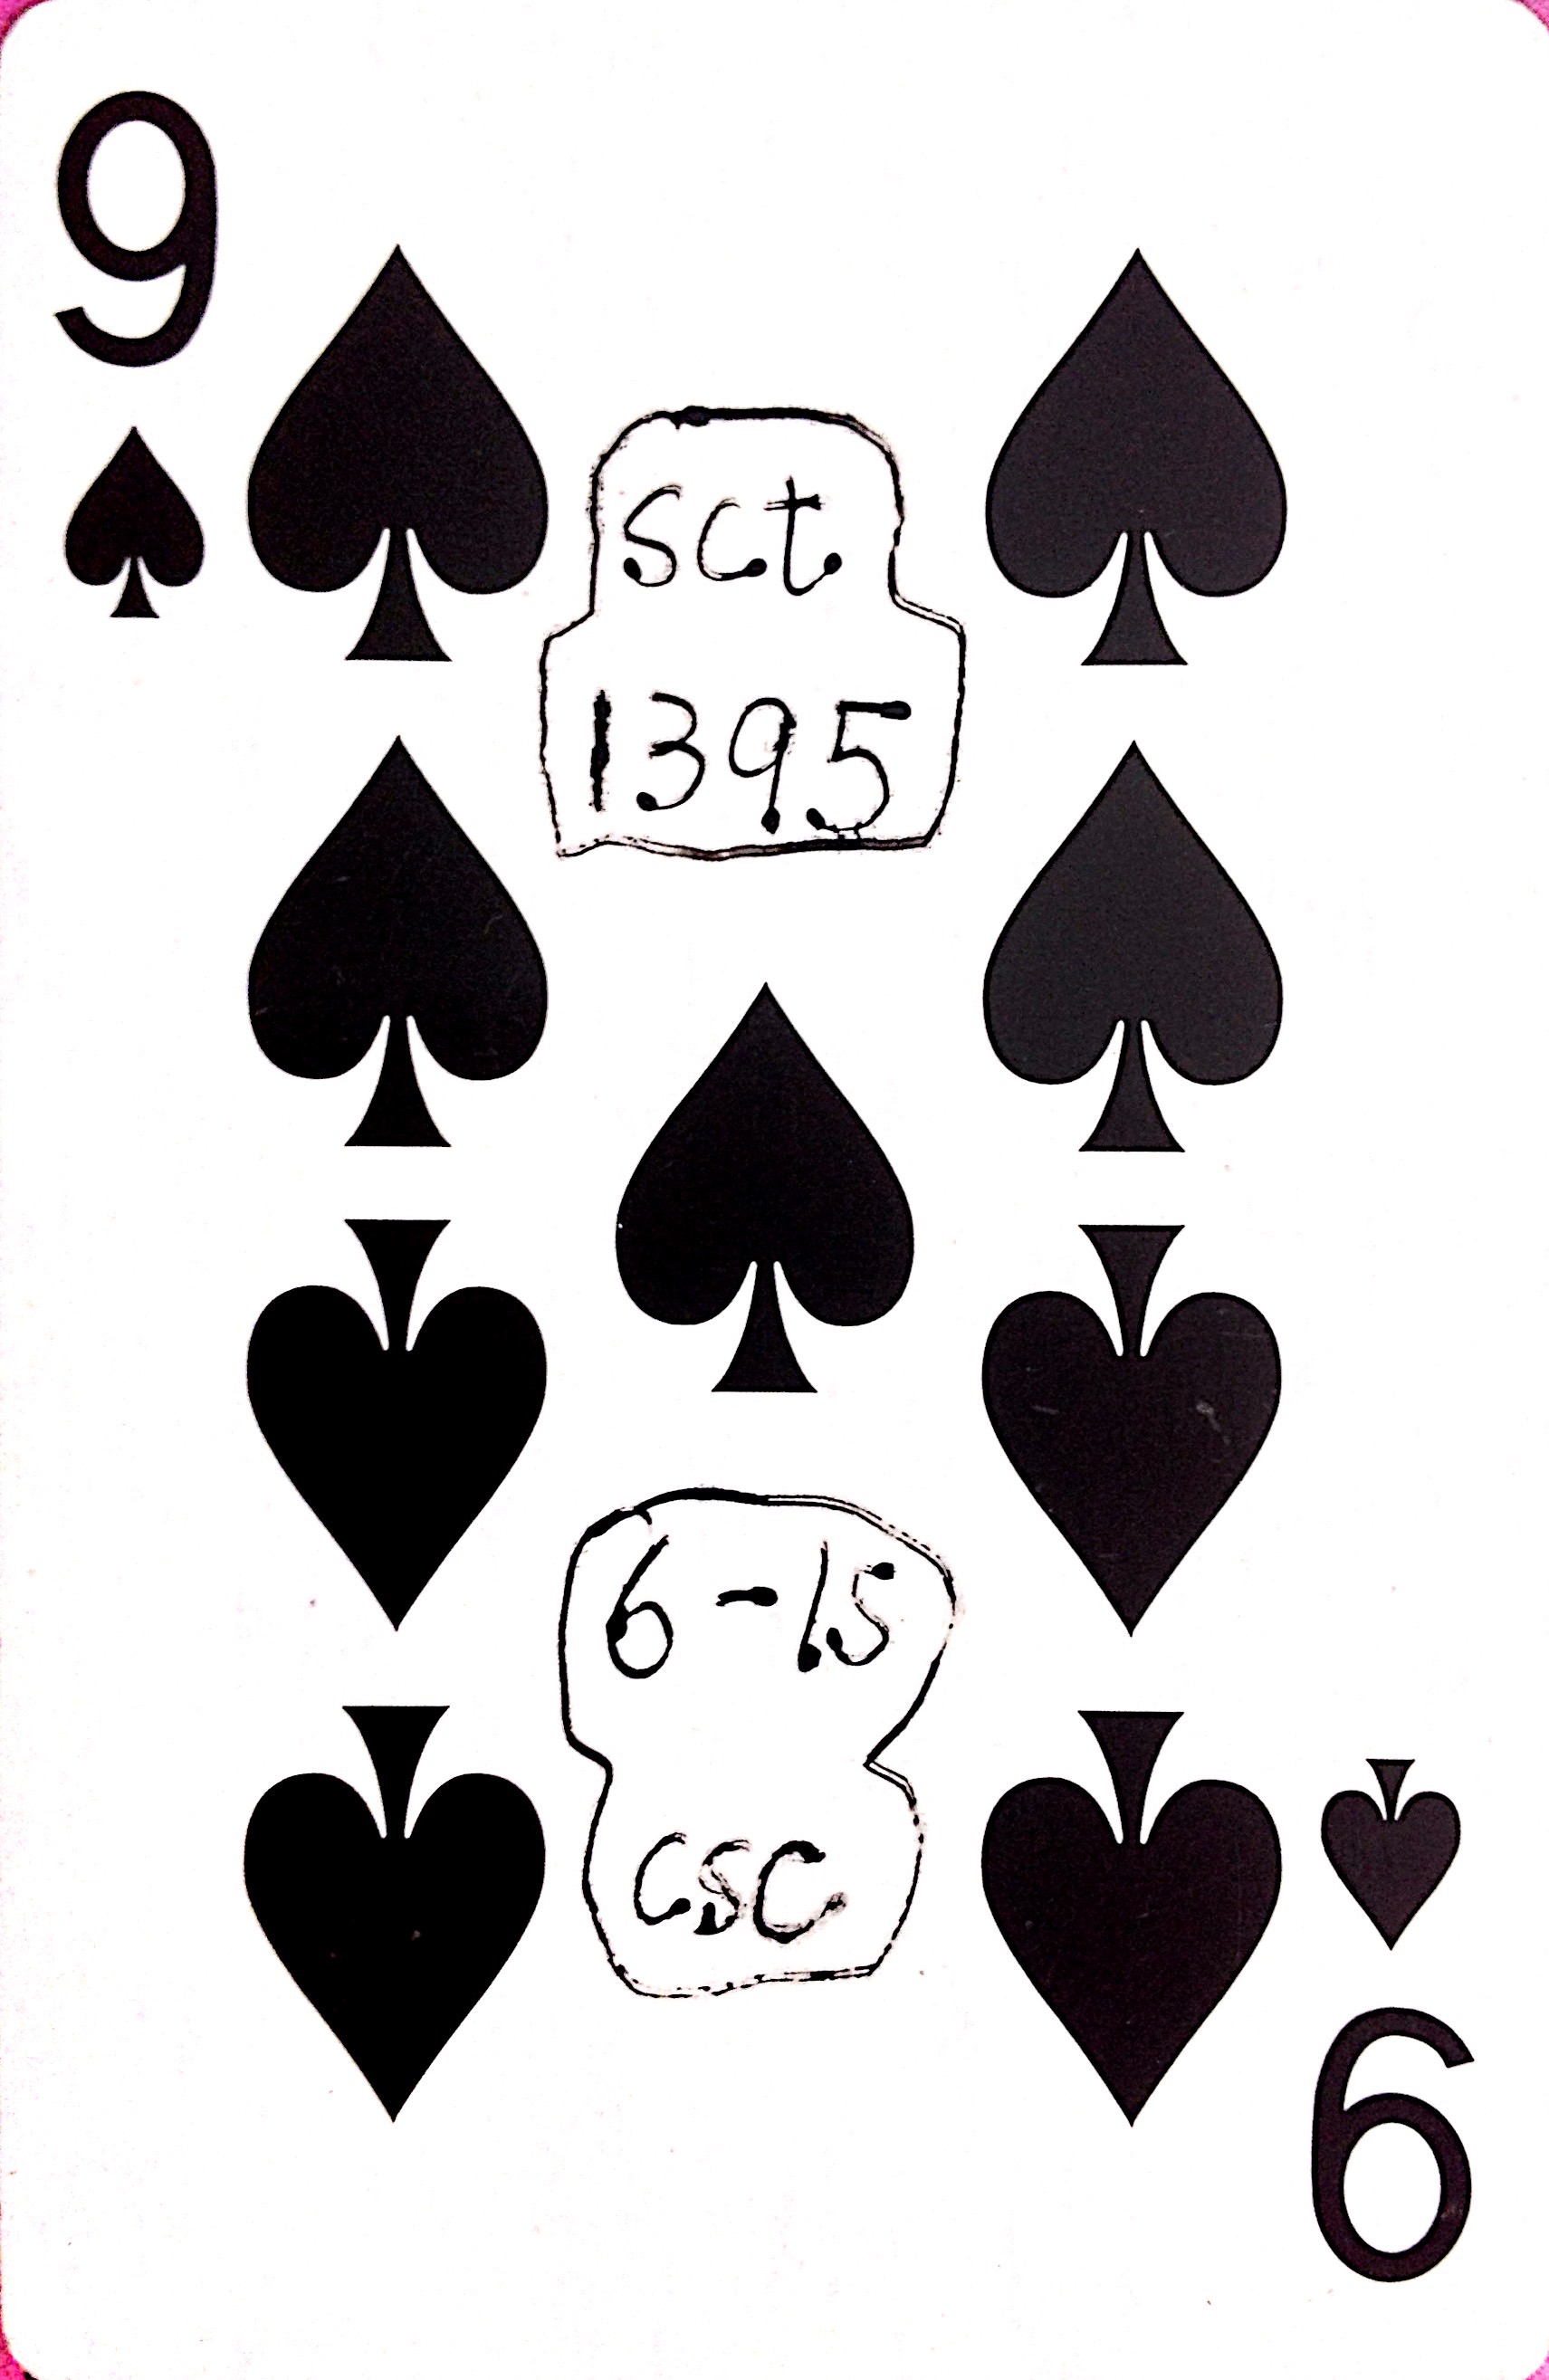 9
sct
1395
6-15
csc
9